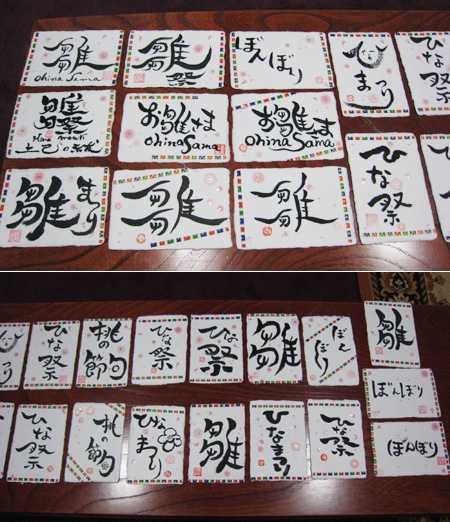 雛
Ohina Sama
雛
祭
ぼんぼり
ひな
まつり
ひな祭
雛祭
Hina matsuri
お雛さま
Ohina Sama
お雛さま
Ohina Sama
ひな祭
雛
まつり
雛
雛
ひな祭
桃の
節句
ひな祭
ひな
祭
雛
ぼん
ぼり
雛
ひな祭
桃の
節句
ひな
まつり
雛
ひなまつり
ひな祭
ぼんぼり
ぼんぼり